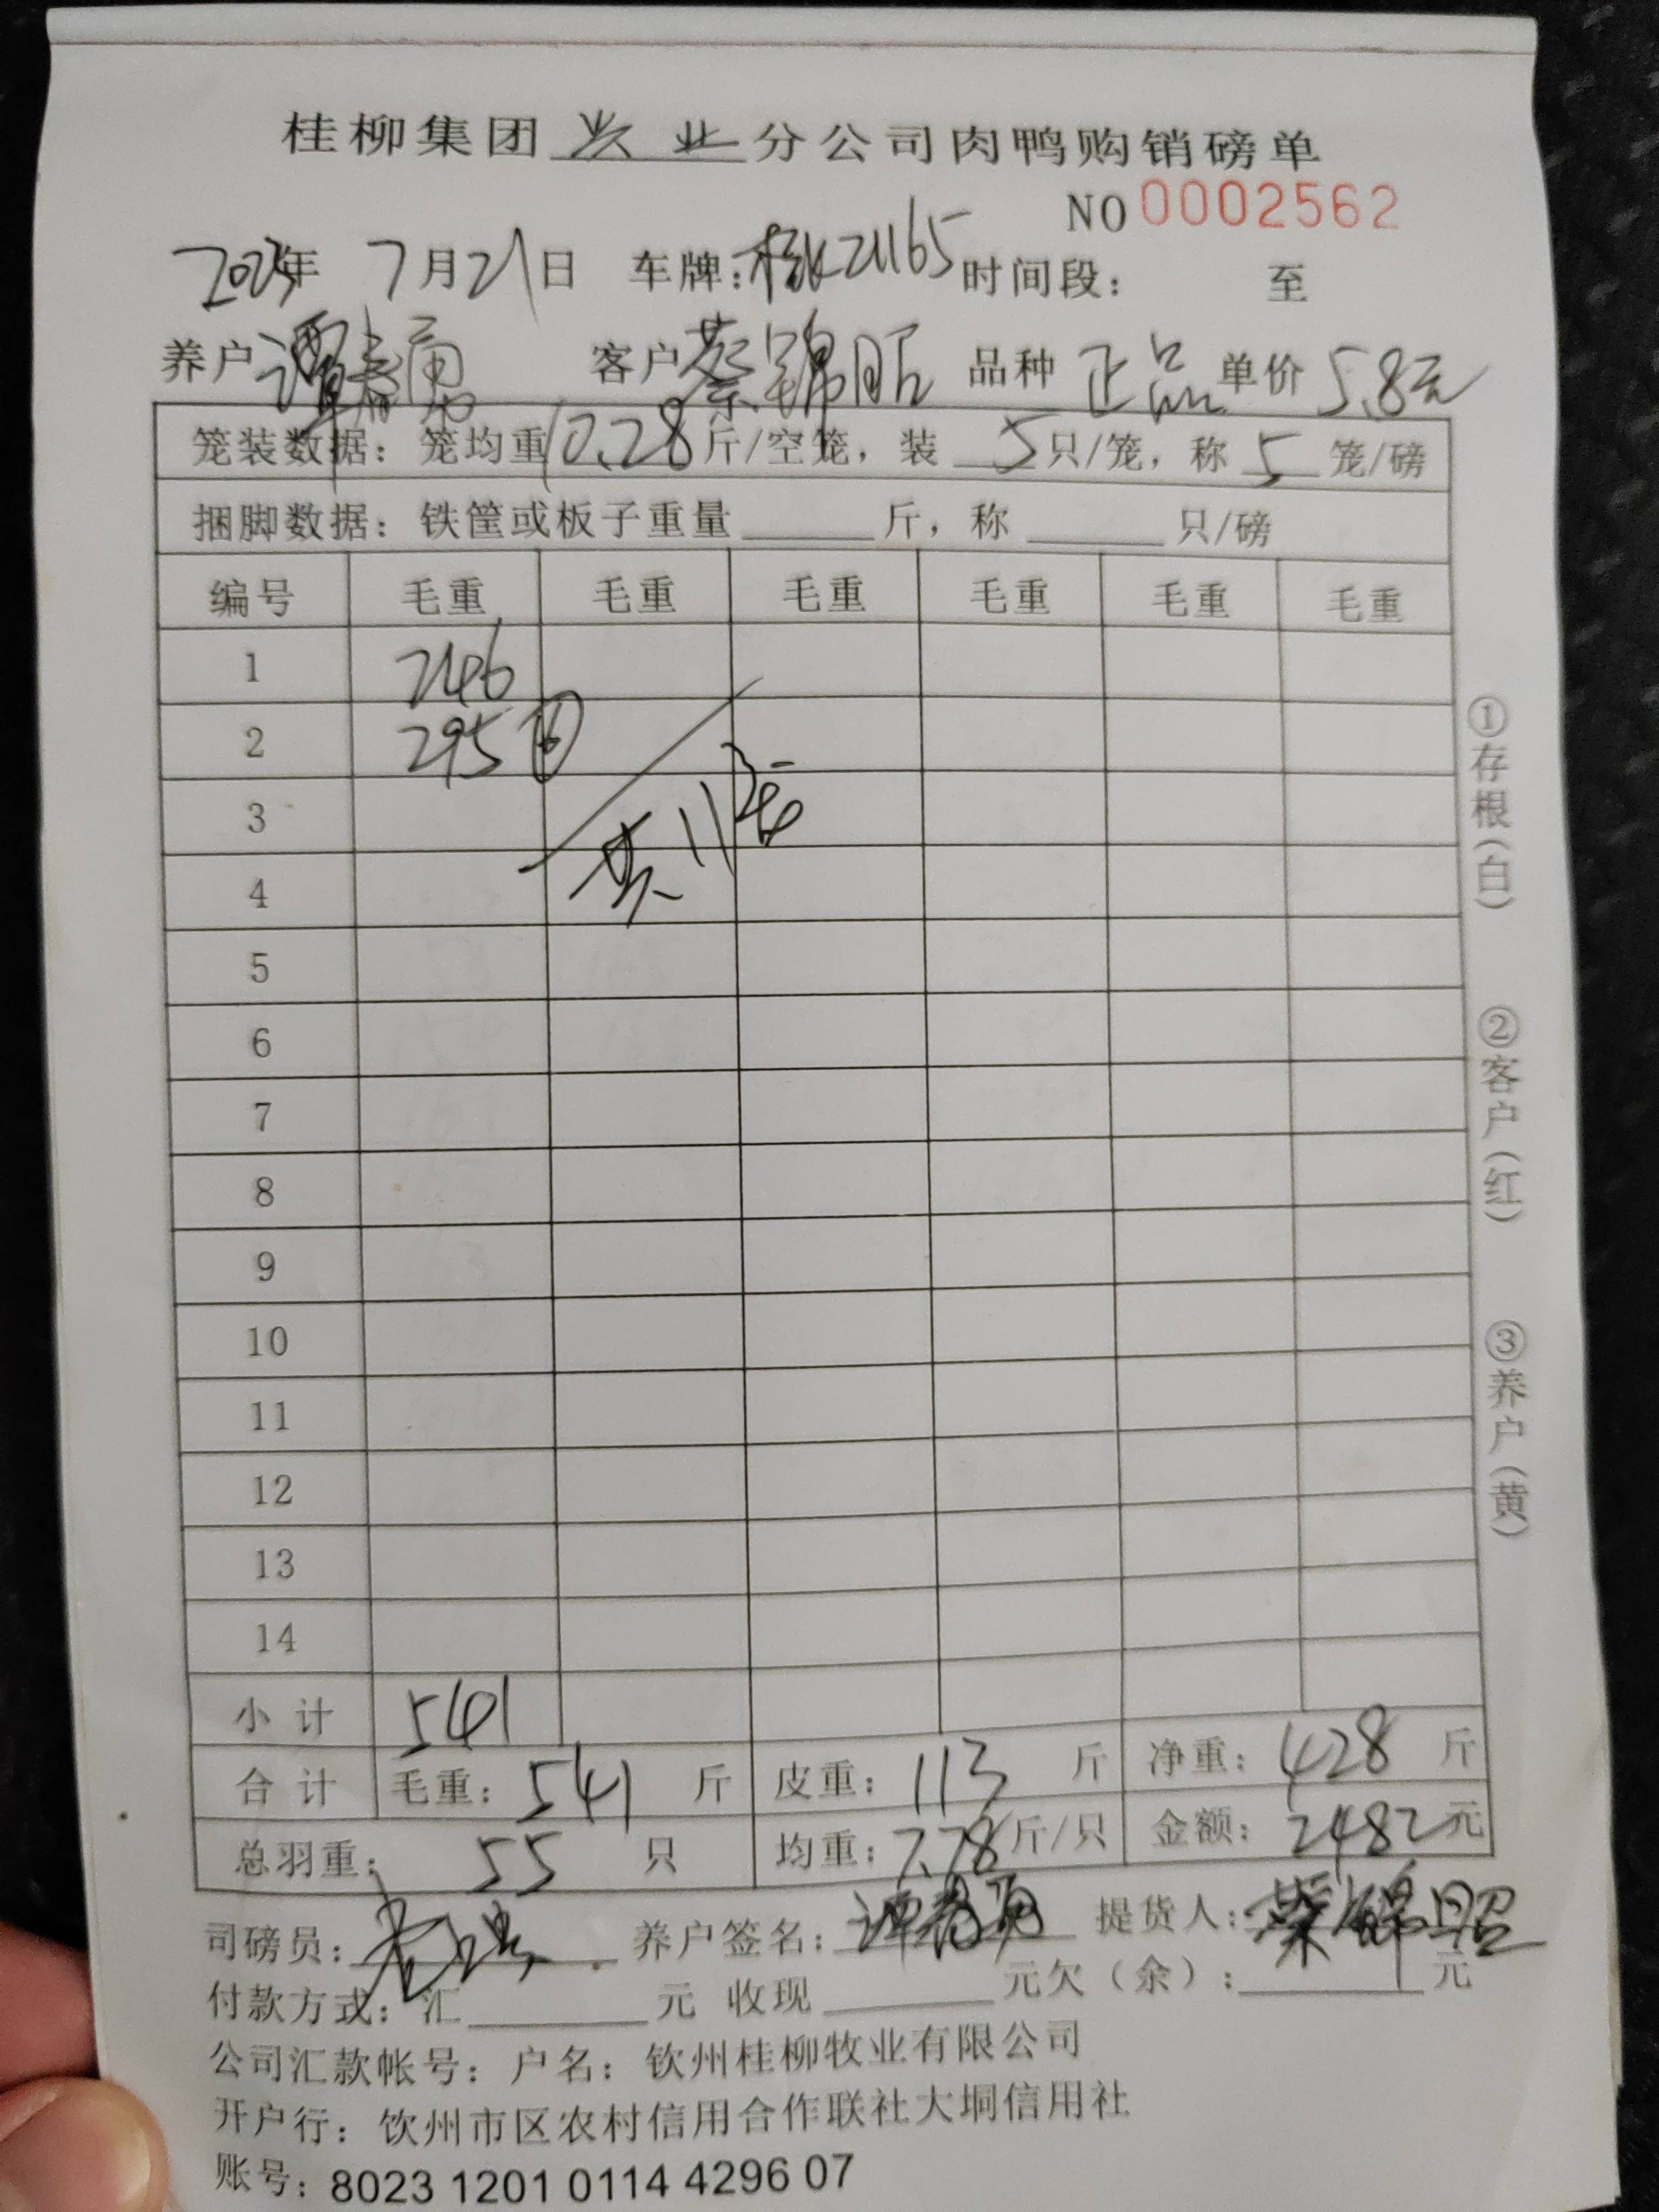 桂柳集团兴业分公司肉鸭购销磅单
NO 0002562
2023年 7月21日 车牌: 时间段: 至
养户 客户 蔡锦昭 品种 正品 单价 5.8元
笼装数据: 笼均重10.28斤/空笼, 装 5只/笼, 称 5 笼/磅
捆脚数据: 铁筐或板子重量 斤, 称 只/磅
编号 毛重 毛重 毛重 毛重 毛重 毛重
1 246
2 295 ⑥
3 共11笼
4
5
6
7
8
9
10
11
12
13
14
小计 541
合计 毛重: 541 斤 皮重: 113 斤 净重: 428 斤
总羽重: 55 只 均重: 7.78斤/只 金额: 2482元
司磅员: 养户签名: 提货人: 蔡锦昭
付款方式: 汇 元 收现 元欠(余): 元
公司汇款帐号: 户名: 钦州桂柳牧业有限公司
开户行: 钦州市区农村信用合作联社大垌信用社
账号: 8023 1201 0114 4296 07
①存根(白) ②客户(红) ③养户(黄)